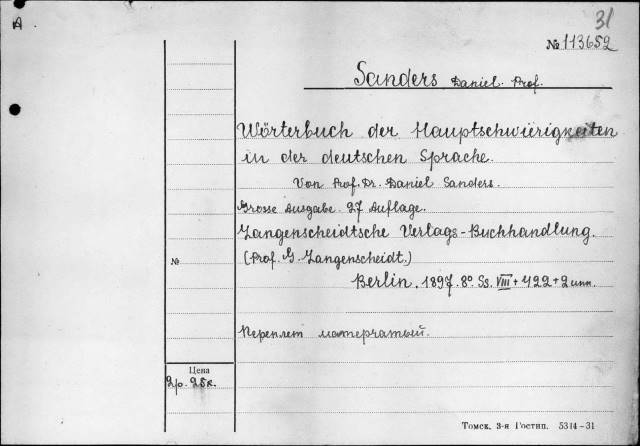 A
31
№ 113652
Sanders Daniel. Prof.
Wörterbuch der Hauptschwierigkeiten
in der deutschen Sprache.
Von Prof. Dr. Daniel Sanders.
Grosse Ausgabe. 27 Auflage.
Langenscheidtsche Verlags-Buchhandlung.
№ (Prof. G. Langenscheidt.)
Berlin. 1897. 8° Ss. VIII + 422 + 2 unn.
Переплет матерчатый.
Цена
2р. 25к.
Томск. 3-я Гостип. 5314-31